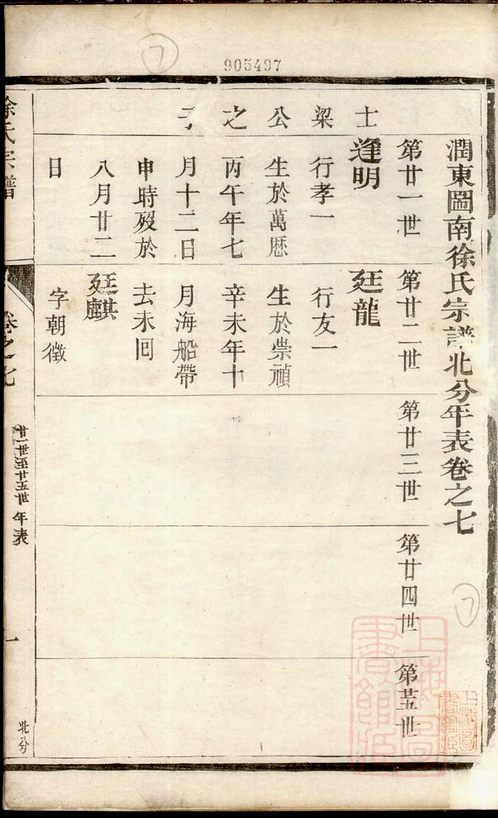 905497
7
潤東圖南徐氏宗譜北分年表卷之七
第廿一世
第廿二世
第廿三世
第廿四世
第廿五世
士梁公之子
逢明
行孝一
生於萬厯
丙午年七
月十二日
申時歿於
八月廿二
日
廷龍
行友一
生於崇禎
辛未年十
月海船帶
去未囘
廷麒
字朝徵
徐氏宗譜
卷之七
廿一世至廿五世年表
一
北分
7
上海圖書館藏